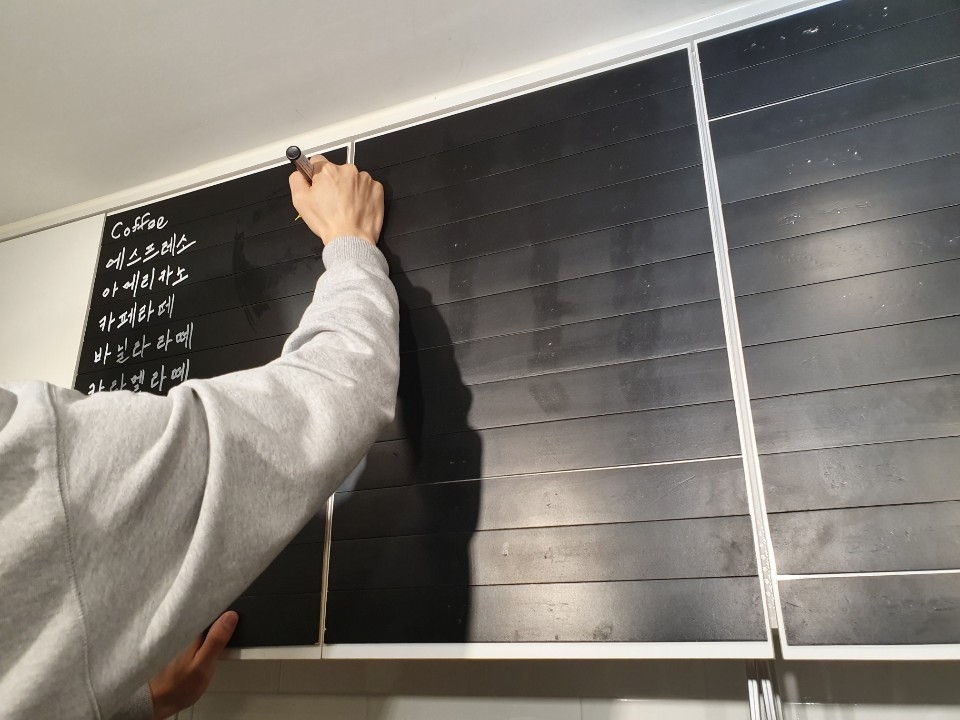 Coffee
에스프레소
아메리카노
카페라떼
바닐라 라떼
카라멜라떼